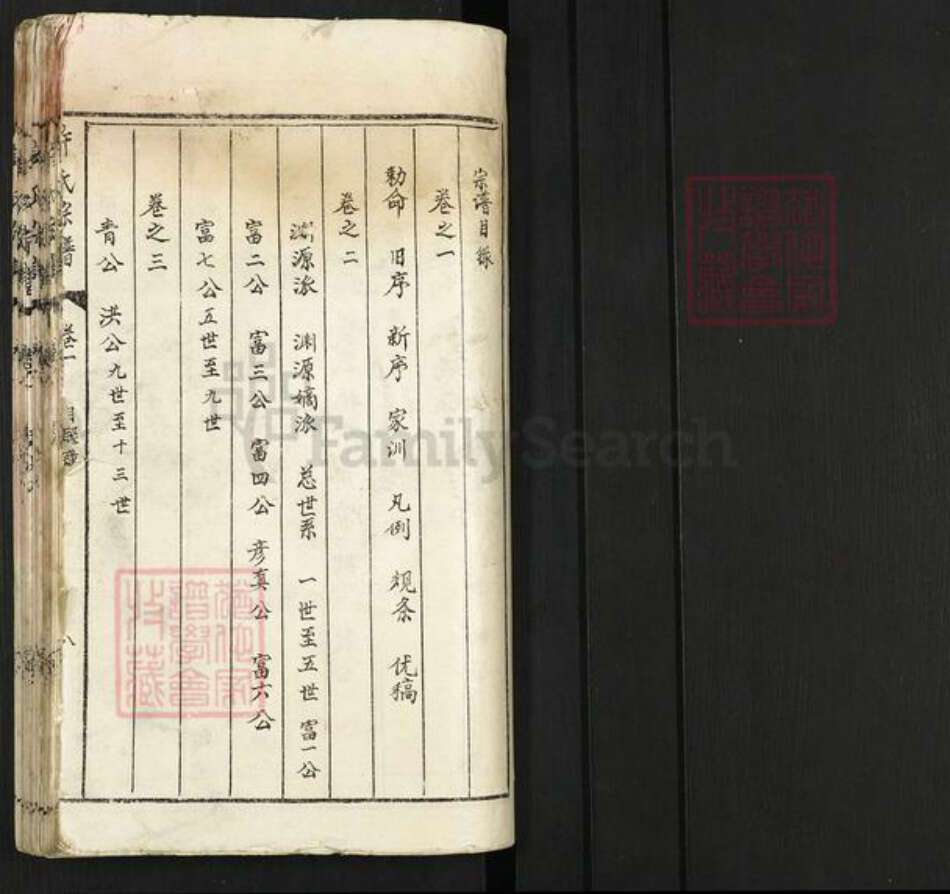 宗谱目录
卷之一
勅命 旧序 新序 家训 凡例 规条 优稿
卷之二
渊源派 渊源嫡派 总世系 一世至五世 富一公
富二公 富三公 富四公 彦真公 富六公
富七公五世至九世
卷之三
青公 洪公九世至十三世
许氏宗谱 卷一 八
FamilySearch